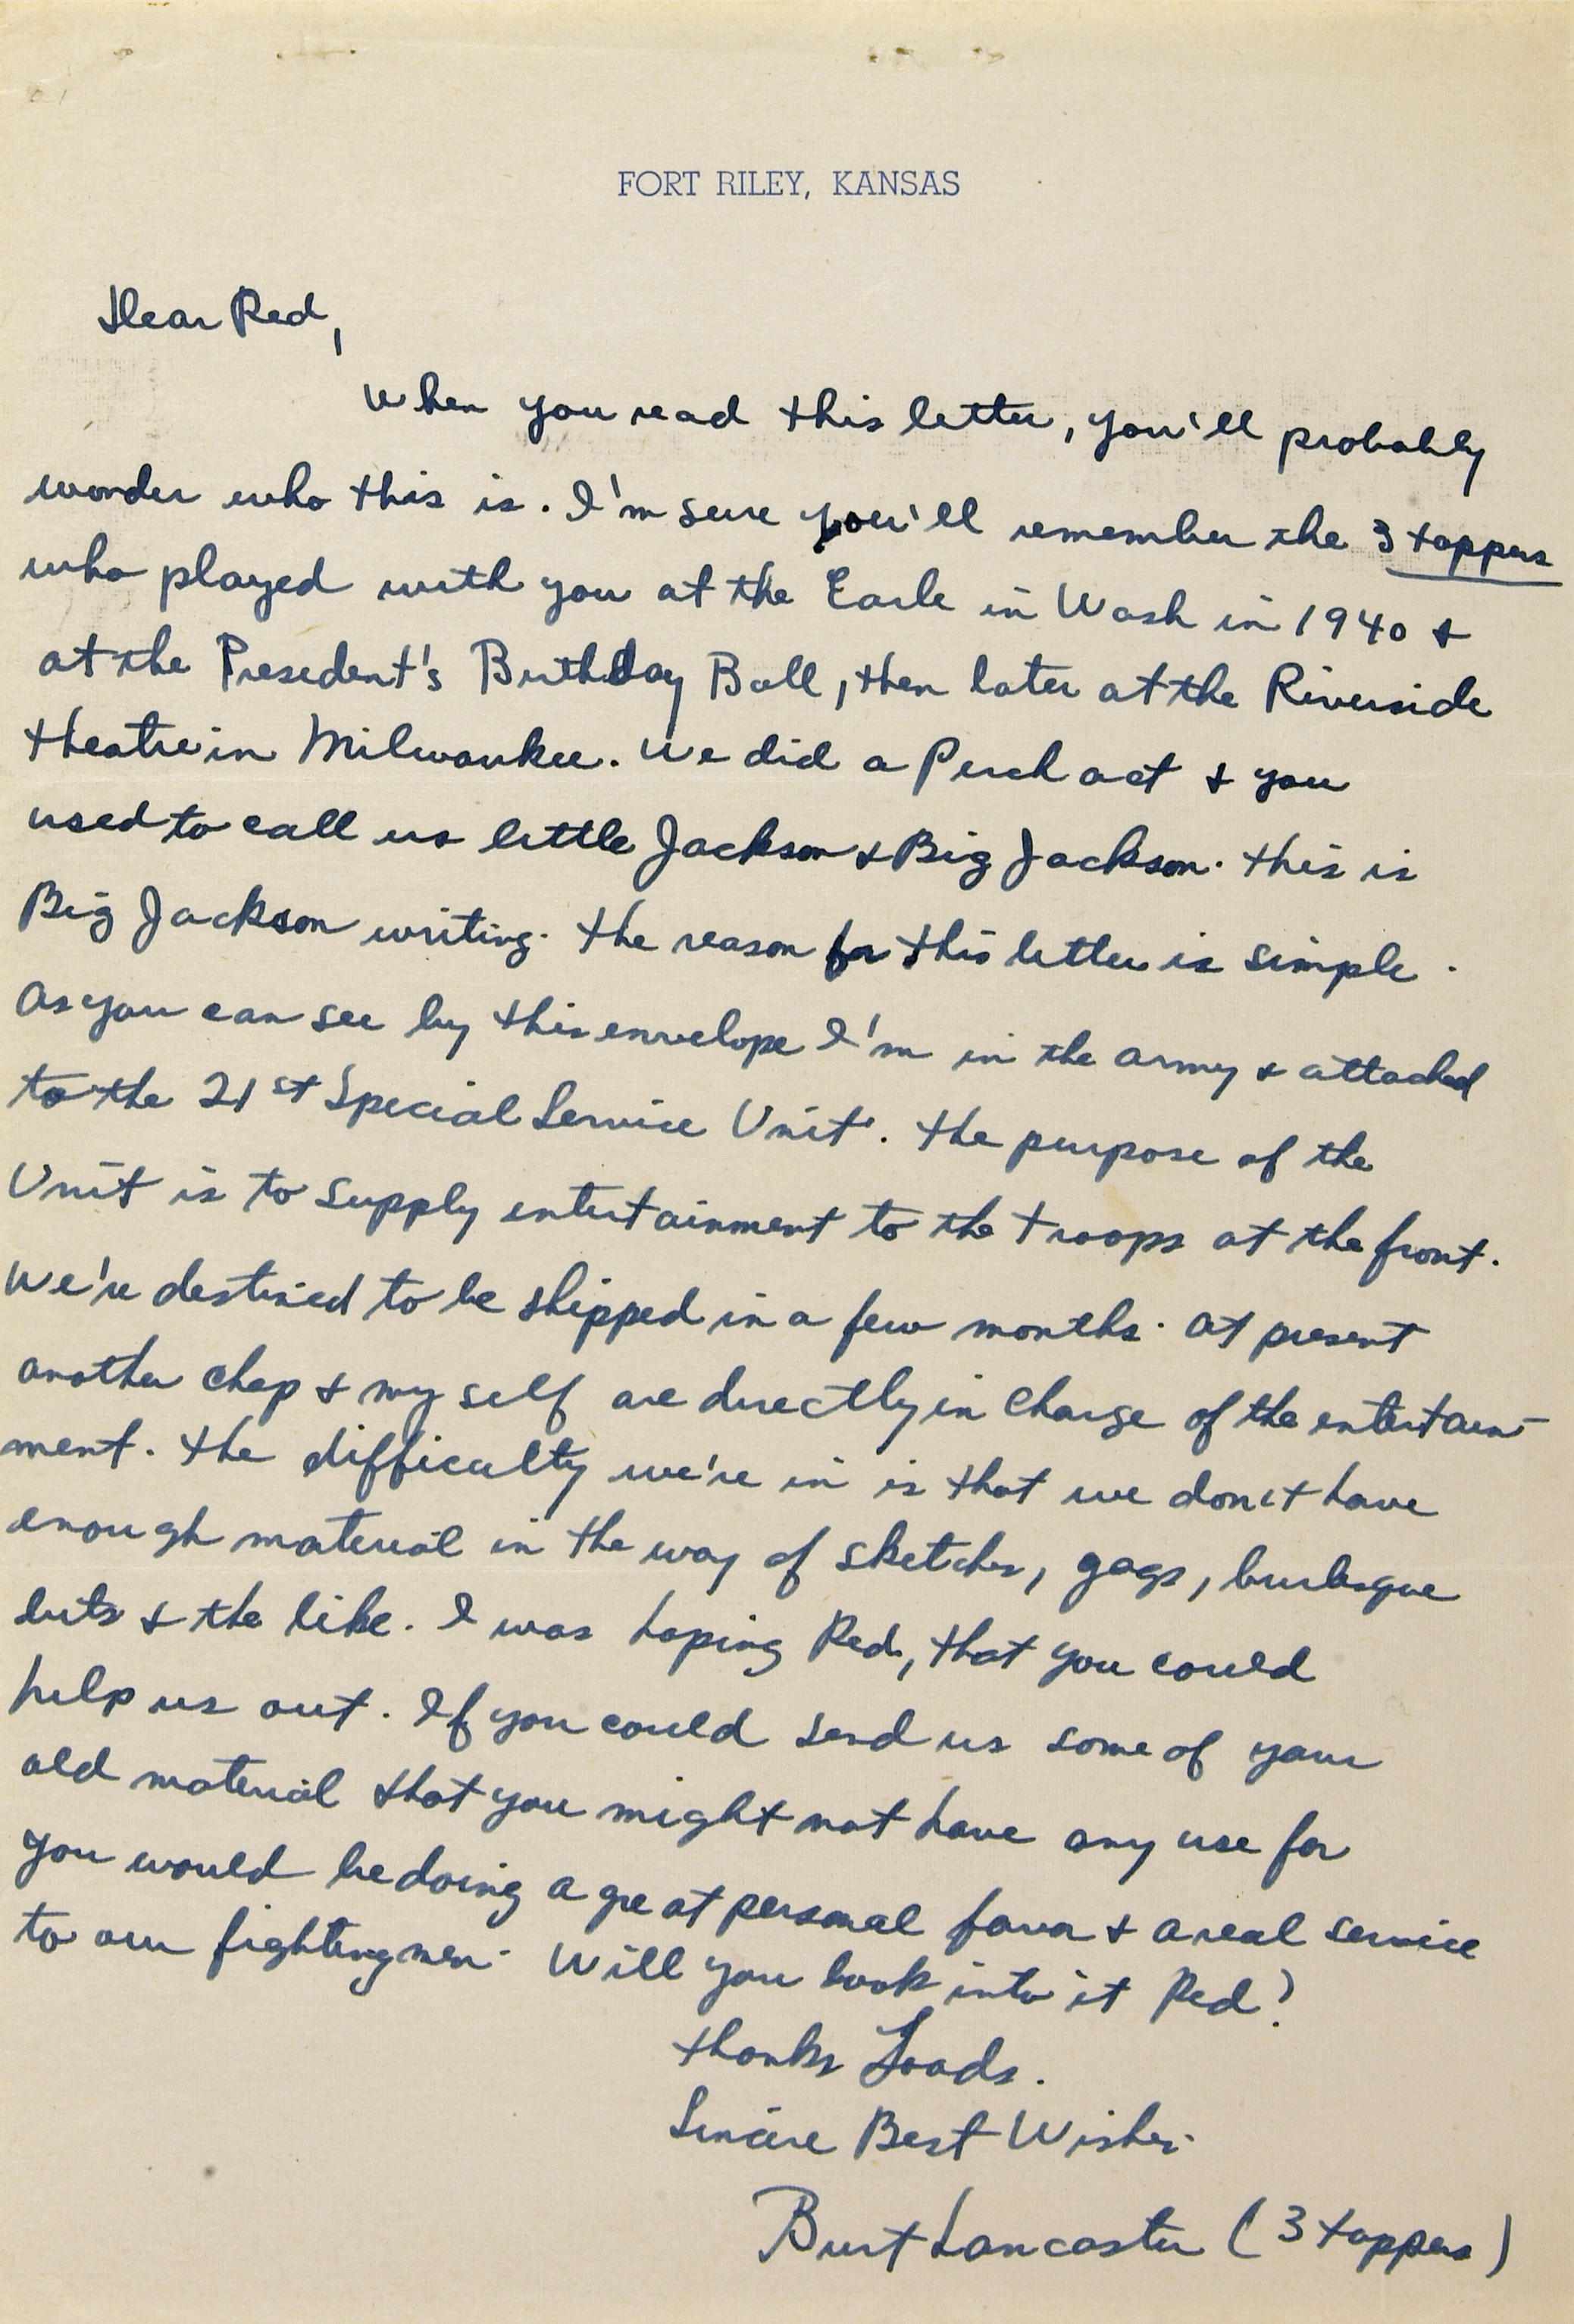 FORT RILEY, KANSAS
Dear Red,
When you read this letter, you'll probably
wonder who this is. I'm sure you'll remember the 3 toppers
who played with you at the Earle in Wash in 1940 &
at the President's Birthday Ball, then later at the Riverside
theatre in Milwaukee. We did a Perch act & you
used to call us little Jackson & Big Jackson. this is
Big Jackson writing. the reason for this letter is simple.
As you can see by this envelope I'm in the army & attached
to the 21st Special Service Unit. the purpose of the
Unit is to supply entertainment to the troops at the front.
We're destined to be shipped in a few months. at present
another chap & my self are directly in charge of the entertain-
ment. the difficulty we're in is that we don't have
enough material in the way of sketches, gags, burlesque
bits & the like. I was hoping Red, that you could
help us out. If you could send us some of your
old material that you might not have any use for
you would be doing a great personal favor & a real service
to our fighting men. Will you look into it Red?
thanks Loads.
Sincere Best Wishes.
Burt Lancaster (3 toppers)